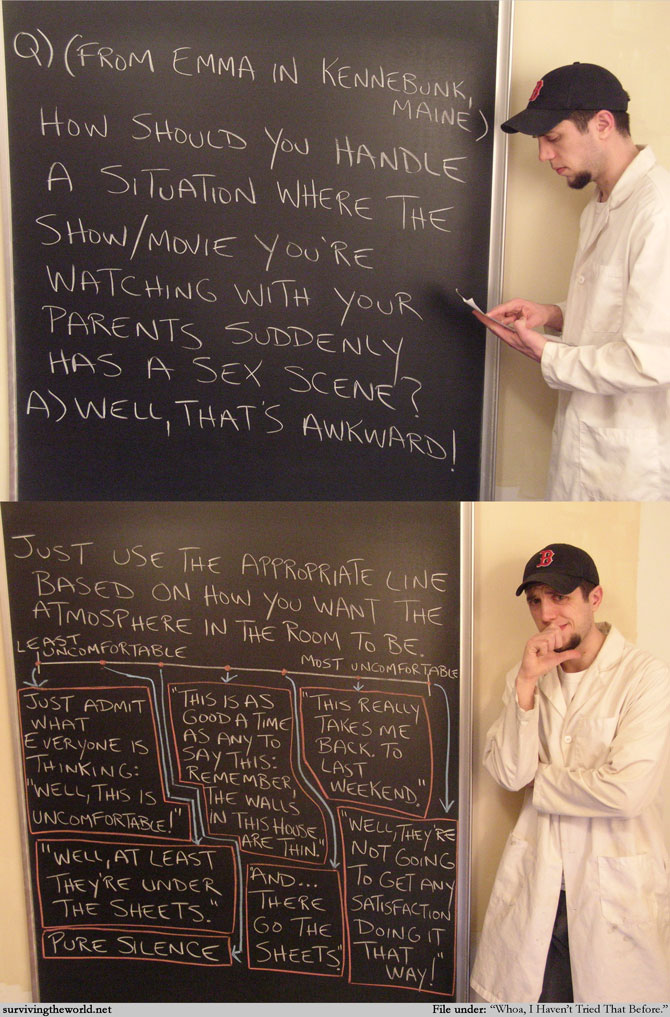 Q) (FROM EMMA IN KENNEBUNK,
MAINE)
HOW SHOULD YOU HANDLE
A SITUATION WHERE THE
SHOW/MOVIE YOU'RE
WATCHING WITH YOUR
PARENTS SUDDENLY
HAS A SEX SCENE?
A) WELL, THAT'S AWKWARD!
B
JUST USE THE APPROPRIATE LINE
BASED ON HOW YOU WANT THE
ATMOSPHERE IN THE ROOM TO BE.
LEAST
UNCOMFORTABLE
MOST UNCOMFORTABLE
JUST ADMIT
WHAT
EVERYONE IS
THINKING:
"WELL, THIS IS
UNCOMFORTABLE!"
"WELL, AT LEAST
THEY'RE UNDER
THE SHEETS."
PURE SILENCE
"THIS IS AS
GOOD A TIME
AS ANY TO
SAY THIS:
REMEMBER,
THE WALLS
IN THIS HOUSE
ARE THIN."
"AND...
THERE
GO THE
SHEETS."
"THIS REALLY
TAKES ME
BACK. TO
LAST
WEEKEND."
"WELL, THEY'RE
NOT GOING
TO GET ANY
SATISFACTION
DOING IT
THAT
WAY!"
B
survivingtheworld.net
File under: "Whoa, I Haven't Tried That Before."